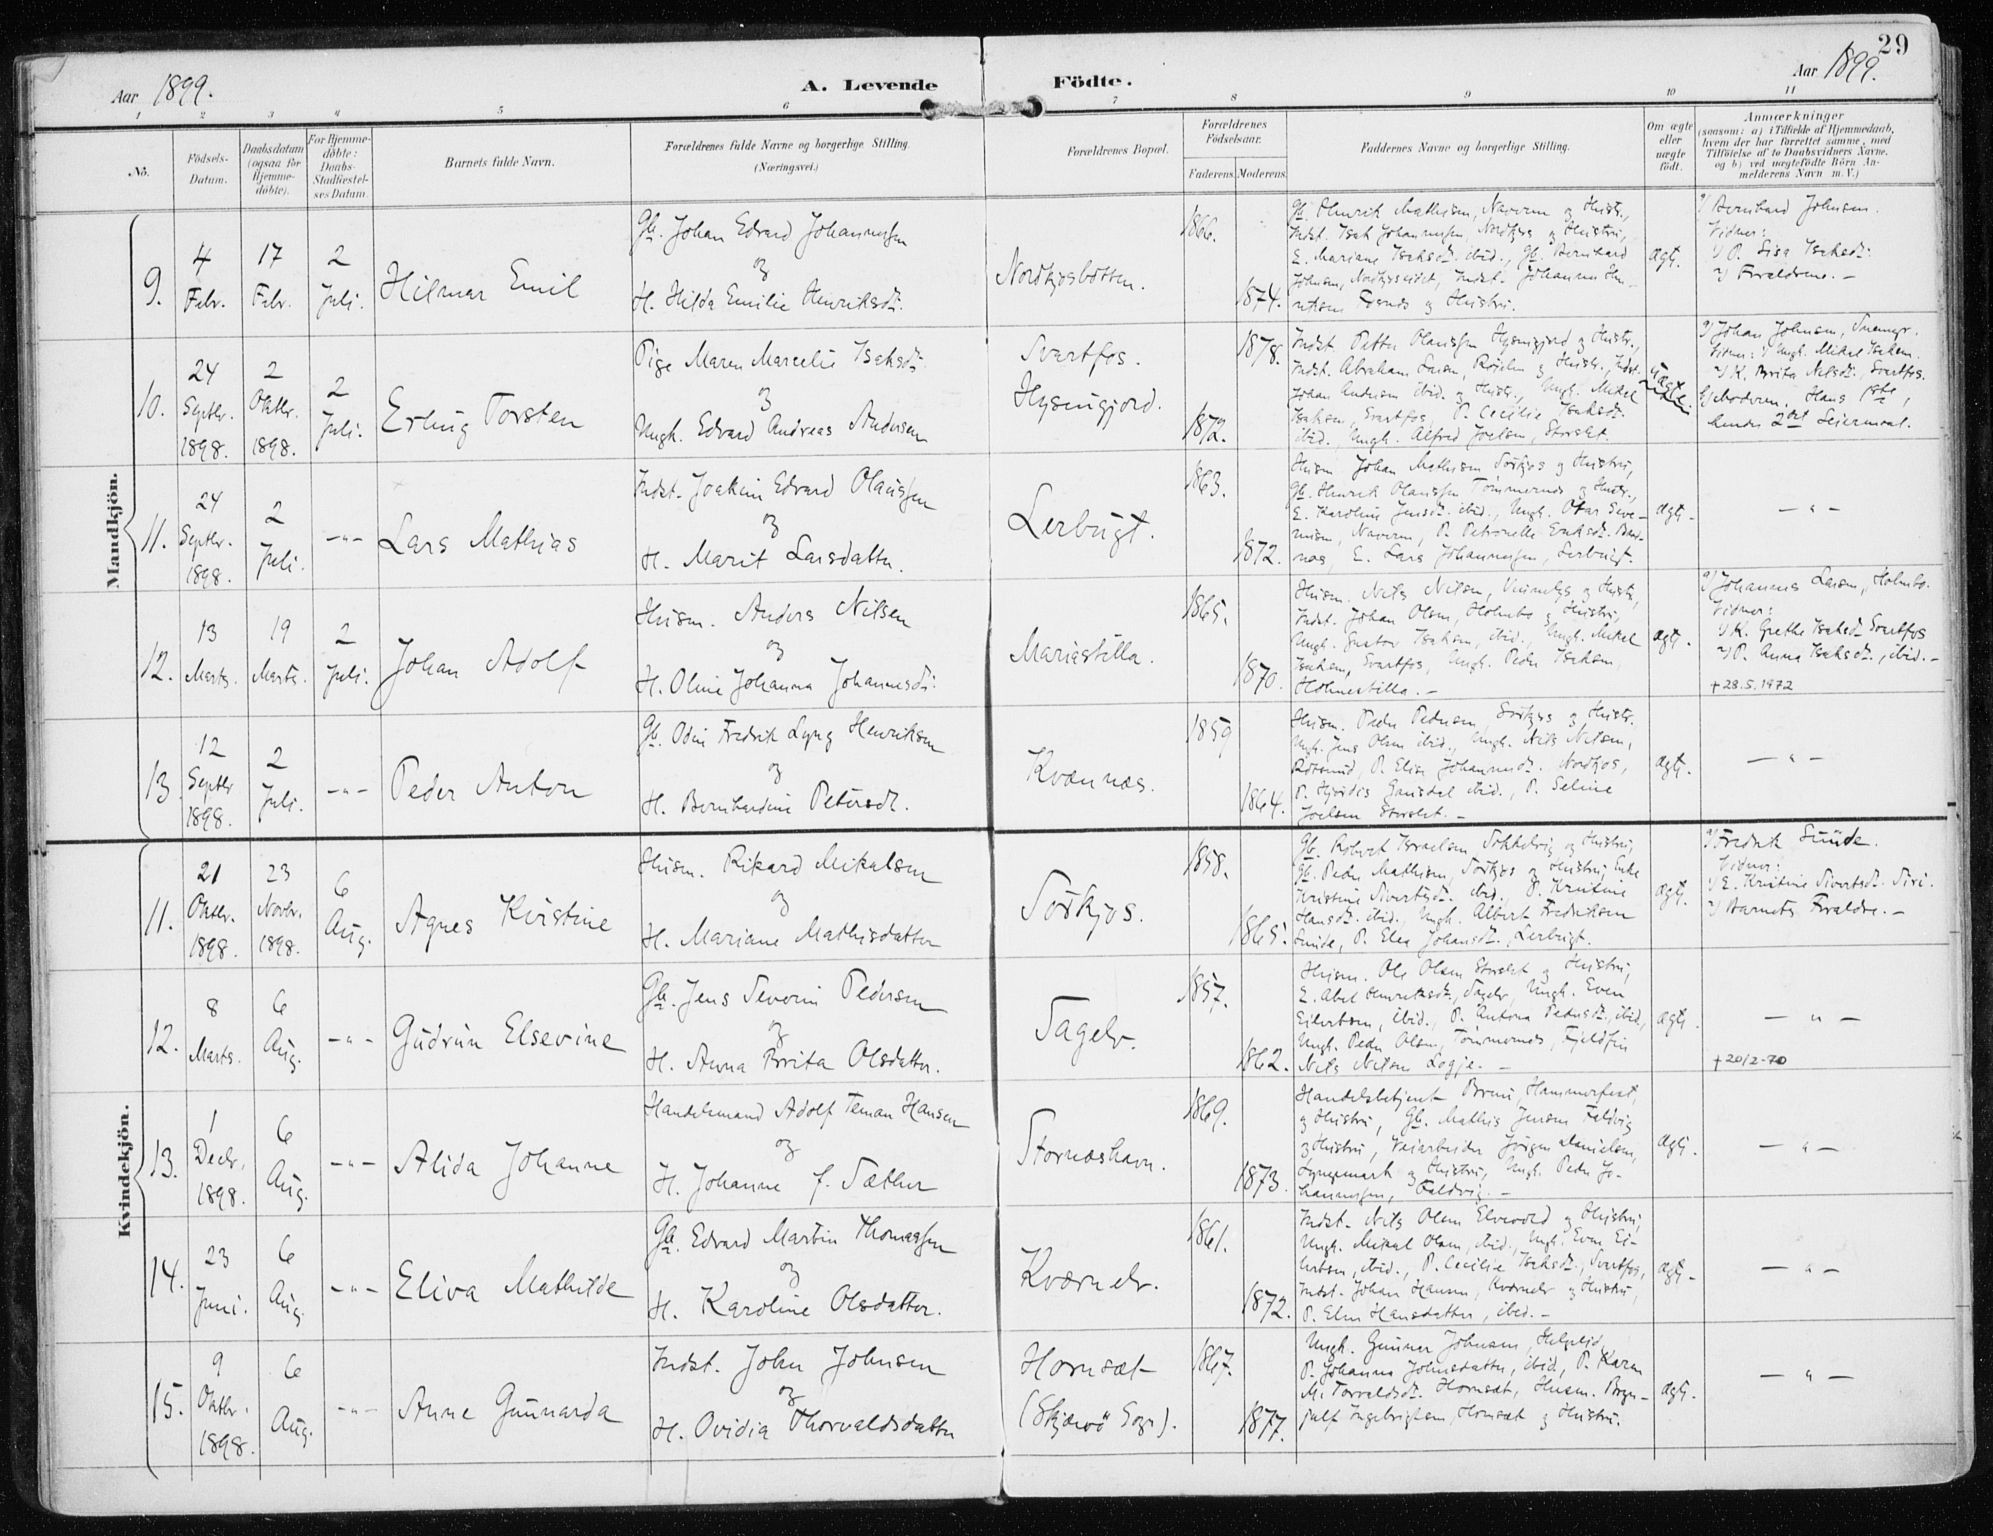 29
Aar 1899.
A. Levende Födte.
Aar 1899.
1 2 3 4 5 6 7 8 9 10 11
No.
Födsels-
Datum.
Daabsdatum
(ogsaa for
Hjemme-
døbte).
For Hjemme-
døbte:
Daabs-
Stadfæstel-
ses Datum.
Barnets fulde Navn.
Forældrenes fulde Navne og borgerlige Stilling.
(Næringsvei.)
Forældrenes Bopæl.
Forældrenes
Fødselsaar.
Faderens. Moderens.
Faddernes Navne og borgerlige Stilling.
Om ægte
eller
uægte
født.
Anmærkninger
(saasom: a) i Tilfælde af Hjemmedaab,
hvem der har forrettet samme, med
Tilföielse af to Daabsvidners Navne.
og b) ved uægtefödte Börn An-
melderens Navn m. V.)
Mandkjön.
9.
4
Febr.
17
Febr.
2
Juli.
Hilmar Emil
Gb. Johan Edvard Johannessen
og
H. Hilda Emilie Henriksdt.
Nordkjosbotten.
1866.
1874.
Gb. Henrik Mathisen, Naveren og Hustr.,
Indst. Isak Johannessen, Nordkjos og Hustru,
E. Mariane Isaksdt. ibid., Gb. Bernhard
Johnsen, Nordkjoseidet, Indst. Johannes Hen-
riksen og Hustru.
ægt.
a) Bernhard Johnsen.
Vidner:
1) P. Lisa Isaksdt.
2) Forældrene. –
10.
24
Septbr.
1898.
2
Oktbr.
1898.
2
Juli.
Erling Torsten
Pige Maren Marcelie Isaksdt.
og
Ungk. Edvard Andreas Andersen
Svartfos.
Hysingjord.
1878.
1872.
Indst. Petter Olaussen Hysingjord og Hustr.,
Indst. Abraham Larsen, og Hustr., Indst.
Johan Andersen ibid. og Hustr., Ungk. Mikal
Isaksen, Svartfos, P. Cecilie Isaksdt.
ibid., Ungk. Alfred Joelsen, Storslet.
uægte
a) Johan Johnsen,
Vidner: 1) Ungk. Mikal Isaksen.
2) K. Brita Nilsdt., Svartfos.
b) Moderen. Hans 1ste,
hendes 2det Leiermaal.
11.
24
Septbr.
1898.
2
Juli.
–"–
Lars Mathias
Indst. Joakim Edvard Olaussen
og
H. Marit Larsdatter.
Lerbugt.
1863.
1872.
Husm. Johan Mathisen Sørkjos og Hustru,
Gb. Henrik Olaussen Tømmernes og Hustr.,
E. Karoline Jensdt. ibid., Ungk. Otar Seve-
rinsen, Naveren, P. Petronelle
E. Lars Johannessen, Lerbugt.
ægt.
– " –
12.
13
Marts.
19
Marts.
2
Juli.
Johan Adolf
Husm. Anders Nilsen
og
H. Oline Johanna Johannesdt.
Mariastilla.
1865.
1870.
Husm. Nils Nilsen, og Hustr.,
Indst. Johan Olsen, Holmbo og Hustru,
Ungk. Gustav Isaksen, ibid., Ungk. Mikal
Isaksen, Svartfos, Ungk. Peder Isaksen,
Holmestilla. –
ægt.
a) Johannes Larsen, Holmbo.
Vidner:
1) K. Grethe Isaksdt. Svartfos
2) P. Anna Isaksdt., ibid. –
+ 28.5.1972
13.
12
Septbr
1898.
2
Juli.
–"–
Peder Anton
Gb. Odin Fredrik Lyng Henriksen
og
H. Bernhardine Petersdt.
Kvænnæs.
1859
1864.
Husm. Peder Pedersen, Sørkjos og Hustr.
Ungk. Jens Olsen ibid., Ungk. Nils Nilsen,
P. Elisa Johannesdt. Nordkjos,
P. Hjørdis ibid., P. Seline
Joelsen Storslet. –
ægt.
– " –
Kvindekjön.
11.
21
Oktbr.
1898.
23
Novbr.
1898.
6
Aug.
Agnes Kristine
Husm. Rikard Mikalsen
og
H. Mariane Mathisdatter
Sørkjos.
1858.
1865.
Gb. Robert Israelsen Sokkelvig og Hustru,
Gb. Peder Mathisen, Sørkjos og Hustru, Enke
Kristine Sivertsdt. ibid., P. Kristine
Hansdt. ibid., Ungk. Albert Fredriksen
Sunde, P. Elen Johansdt., Lerbugt.
ægt.
a) Fredrik Sunde.
Vidner:
1) E. Kristine Sivertsdt.
2) Barnets Forældre. –
12.
8
Marts.
6
Aug.
–"–
Gudrun Elsevine
Gb. Jens Severin Pedersen
og
H. Anna Brita Olsdatter.
Tagelv.
1857.
1862.
Husm. Ole Olsen Storslet og Hustru,
E. Abel Henriksdt., Tagelv, Ungk. Even
Eilertsen, ibid., P. Antona Pedersdt., ibid.,
Ungk. Peder Olsen, Tømmernes, Fjeldfin
Nils Nilsen Logje. –
ægt.
– " –
+ 20/2-70
13.
1
Decbr.
1898.
6
Aug.
–"–
Alida Johanne
Handelsmand Adolf Teman Hansen
og
H. Johanne f. Sæther
Stornæshavn.
1869.
1873.
Handelsbetjent Hammerfest,
og Hustru, Gb. Mathis Jensen Faldvig
og Hustru, Veiarbeider Jørgen Danielsen,
Lyngsmark og Hustru, Ungk. Peder Jo-
hannessen, Faldvig. –
ægt.
– " –
14.
23
Juni.
6
Aug.
–"–
Eliva Mathilde
Gb. Edvard Martin Thomassen
og
H. Karoline Olsdatter.
Kværnelv.
1861.
1872.
Indst. Nils Olsen Elvevold og Hustru,
Ungk. Mikal Olsen, ibid., Ungk. Even Ei-
lertsen, ibid., P. Cecilie Isaksdt., Svartfos,
Indst. Johan Hansen, Kværnelv og Hustru,
P. Elen Hansdatter, ibid. –
ægt.
– " –
15.
9
Oktbr.
1898.
6
Aug.
–"–
Anne Gunnarda
Indst. John Johnsen
og
H. Ovidia Thorvaldsdatter
Hornsæt
(Skjærvö Sogn).
1867.
1877.
Ungk. Gunnar Johnsen,
P. Johanna Johnsdatter, ibid., P. Karen
M. Torvaldsdt. Hornsæt, Husm. Bryn-
julf Ingebrigtsen, Hornsæt og Hustru.
ægt.
– " –